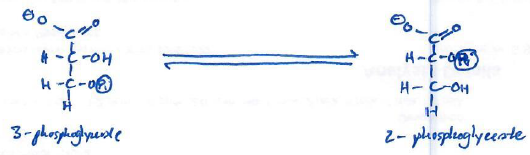 ⊖O O
C
H-C-OH
H-C-OPi
H
3-phosphoglycerate
⊖O O
C
H-C-OPi
H-C-OH
H
2-phosphoglycerate